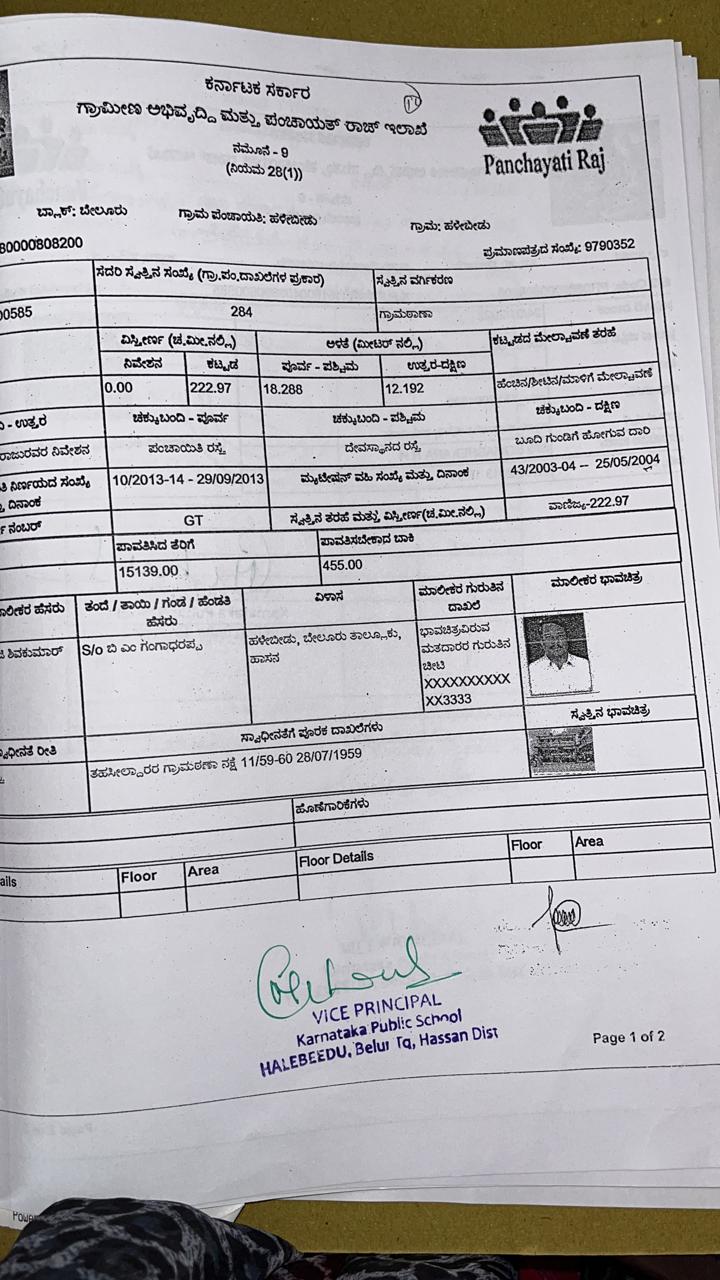 ಕರ್ನಾಟಕ ಸರ್ಕಾರ
ಗ್ರಾಮೀಣ ಅಭಿವೃದ್ಧಿ ಮತ್ತು ಪಂಚಾಯತ್ ರಾಜ್ ಇಲಾಖೆ
ನಮೂನೆ - 9
(ನಿಯಮ 28(1))
Panchayati Raj
ಬ್ಲಾಕ್: ಬೇಲೂರು ಗ್ರಾಮ ಪಂಚಾಯತಿ: ಹಳೇಬೀಡು ಗ್ರಾಮ: ಹಳೇಬೀಡು
80000808200 ಪ್ರಮಾಣಪತ್ರದ ಸಂಖ್ಯೆ: 9790352
ಸದರಿ ಸ್ವತ್ತಿನ ಸಂಖ್ಯೆ (ಗ್ರಾ.ಪಂ.ದಾಖಲೆಗಳ ಪ್ರಕಾರ) ಸ್ವತ್ತಿನ ವರ್ಗಿಕರಣ
00585 284 ಗ್ರಾಮಠಾಣಾ
ವಿಸ್ತೀರ್ಣ (ಚ.ಮೀ.ನಲ್ಲಿ) ಅಳತೆ (ಮೀಟರ್ ನಲ್ಲಿ) ಕಟ್ಟಡದ ಮೇಲ್ಛಾವಣೆ ತರಹೆ
ನಿವೇಶನ ಕಟ್ಟಡ ಪೂರ್ವ - ಪಶ್ಚಿಮ ಉತ್ತರ-ದಕ್ಷಿಣ
0.00 222.97 18.288 12.192 ಹೆಂಚಿನ/ಶೀಟಿನ/ಮಾಳಿಗೆ ಮೇಲ್ಛಾವಣೆ
- ಉತ್ತರ ಚಕ್ಕುಬಂದಿ - ಪೂರ್ವ ಚಕ್ಕುಬಂದಿ - ಪಶ್ಚಿಮ ಚಕ್ಕುಬಂದಿ - ದಕ್ಷಿಣ
ರಾಜುರವರ ನಿವೇಶನ ಪಂಚಾಯಿತಿ ರಸ್ತೆ ದೇವಸ್ಥಾನದ ರಸ್ತೆ ಬೂದಿ ಗುಂಡಿಗೆ ಹೋಗುವ ದಾರಿ
ನಿರ್ಣಯದ ಸಂಖ್ಯೆ 10/2013-14 - 29/09/2013 ಮ್ಯುಟೇಷನ್ ವಹಿ ಸಂಖ್ಯೆ ಮತ್ತು ದಿನಾಂಕ 43/2003-04 -- 25/05/2004
ದಿನಾಂಕ
ನಂಬರ್ GT ಸ್ವತ್ತಿನ ತರಹೆ ಮತ್ತು ವಿಸ್ತೀರ್ಣ(ಚ.ಮೀ.ನಲ್ಲಿ) ವಾಣಿಜ್ಯ-222.97
ಪಾವತಿಸಿದ ತೆರಿಗೆ ಪಾವತಿಸಬೇಕಾದ ಬಾಕಿ
15139.00 455.00
ಹೆಸರು ತಂದೆ / ತಾಯಿ / ಗಂಡ / ಹೆಂಡತಿ ವಿಳಾಸ ಮಾಲೀಕರ ಗುರುತಿನ ಮಾಲೀಕರ ಭಾವಚಿತ್ರ
ಹೆಸರು ದಾಖಲೆ
ಶಿವಕುಮಾರ್ S/o ಬಿ ಎಂ ಗಂಗಾಧರಪ್ಪ ಹಳೇಬೀಡು, ಬೇಲೂರು ತಾಲ್ಲೂಕು, ಭಾವಚಿತ್ರವಿರುವ
ಹಾಸನ ಮತದಾರರ ಗುರುತಿನ
ಚೀಟಿ
XXXXXXXXXX
XX3333
ಸ್ವಾಧೀನತೆಗೆ ಪೂರಕ ದಾಖಲೆಗಳು ಸ್ವತ್ತಿನ ಭಾವಚಿತ್ರ
ರೀತಿ
ತಹಸೀಲ್ದಾರರ ಗ್ರಾಮಠಣಾ ನಕ್ಷೆ 11/59-60 28/07/1959
ಹೊಣೆಗಾರಿಕೆಗಳು
ails Floor Area Floor Details Floor Area
VICE PRINCIPAL
Karnataka Public School
HALEBEEDU, Belur Tq, Hassan Dist
Page 1 of 2